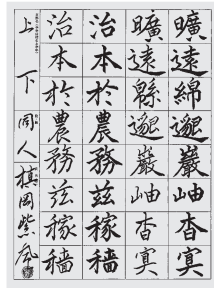 曠遠緜邈巖岫杳冥
曠遠綿邈巖岫杳冥
治本於農務茲稼穡
治本於農務茲稼穡
上下同人